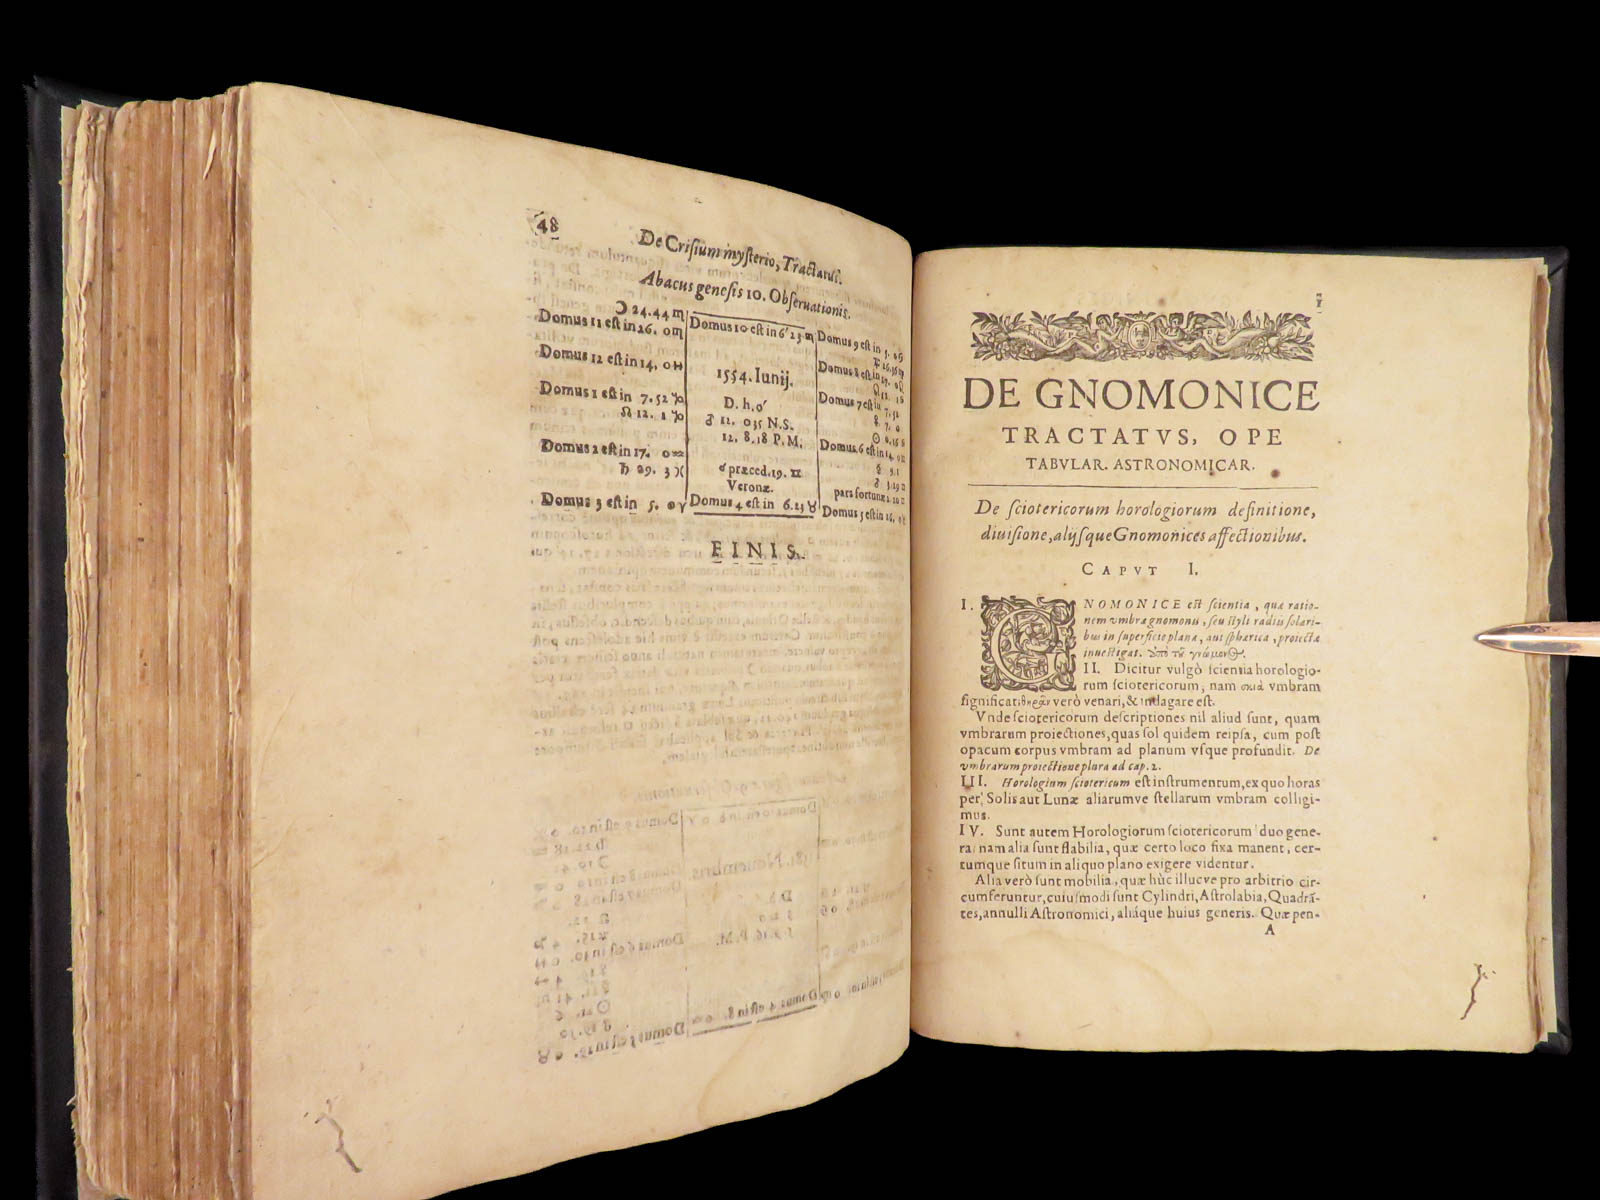 48
De Crisium mysterio, Tractatus.
Abacus genesis 10. Observationis.
☽ 24.44 ♏
Domus 11 est in 26. 0 ♏
Domus 12 est in 14, 0 ♐
Domus 1 est in 7.52 ♑
☊ 12. 1 ♑
Domus 2 est in 17. 0 ♒
♄ 29. 3 ♓
Domus 3 est in 5. 0 ♈
Domus 10 est in 6 23 ♏
1554. Iunij.
D. h.
♂ 11. 035 N.S.
12. 8.18 P.M.
☌ præced. 19. ♊
Veronæ.
Domus 4 est in 6.23 ♉
Domus 9 est in 5.
Domus 8 est in 17. 0
Domus 7 est in 7.52
Domus 6 est in 14. 0
pars fortunæ
Domus 5 est in
FINIS.
DE GNOMONICE
TRACTATVS, OPE
TABVLAR. ASTRONOMICAR.
De sciotericorum horologiorum definitione,
diuisione, alijsque Gnomonices affectionibus.
CAPVT I.
I. GNOMONICE est scientia, quæ ratio-
nem vmbræ gnomonis, seu styli radiis solari-
bus in superficie plana, aut sphærica, proiectæ
inuestigat. ἀπὸ τοῦ γνώμονος.
II. Dicitur vulgò scientia horologio-
rum sciotericorum, nam σκιὰ vmbram
significat: θηρᾶν verò venari, & indagare est.
Vnde sciotericorum descriptiones nil aliud sunt, quam
vmbrarum proiectiones, quas sol quidem reipsa, cum post
opacum corpus vmbram ad planum vsque profundit. De
vmbrarum proiectione plura ad cap. 2.
III. Horologium sciotericum est instrumentum, ex quo horas
per Solis aut Lunæ aliarumve stellarum vmbram colligi-
mus.
IV. Sunt autem Horologiorum sciotericorum duo gene-
ra: nam alia sunt stabilia, quæ certo loco fixa manent, cer-
tumque situm in aliquo plano exigere videntur.
Alia verò sunt mobilia, quæ hùc illucve pro arbitrio cir-
cumferuntur, cuiusmodi sunt Cylindri, Astrolabia, Quadrã-
tes, annulli Astronomici, aliáque huius generis. Quæ pen-
A